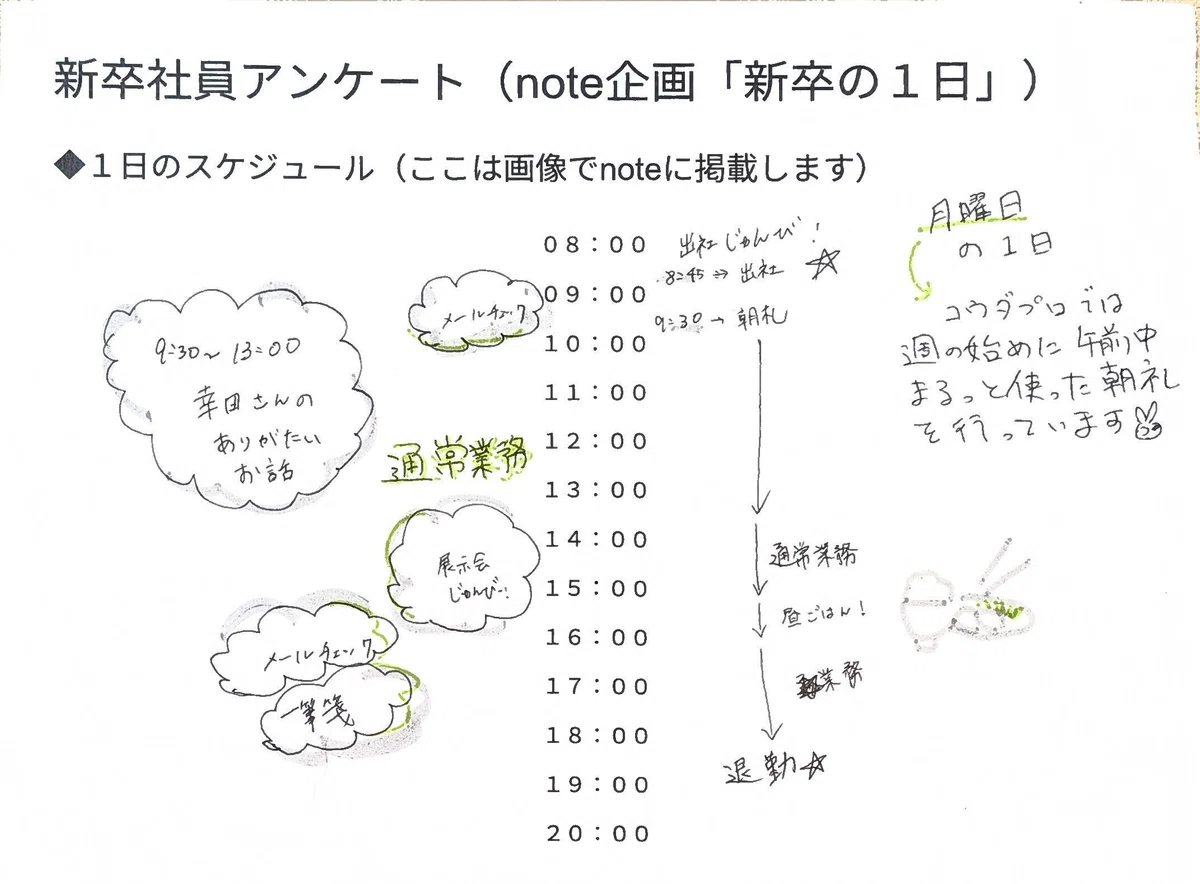 新卒社員アンケート（note企画「新卒の１日」）
◆１日のスケジュール（ここは画像でnoteに掲載します）
月曜日
の１日
コウダプロでは
週の始めに午前中
まるっと使った朝礼
を行っています
08：00
出社じゅんび！
8:45 ⇒ 出社 ☆
メールチェック
09：00
9:30 → 朝礼
10：00
11：00
12：00
13：00
14：00
15：00
16：00
17：00
18：00
19：00
20：00
9:30～13:00
幸田さんの
ありがたい
お話
通常業務
展示会
じゅんび！
メールチェック
一筆箋
通常業務
昼ごはん！
業務
退勤☆